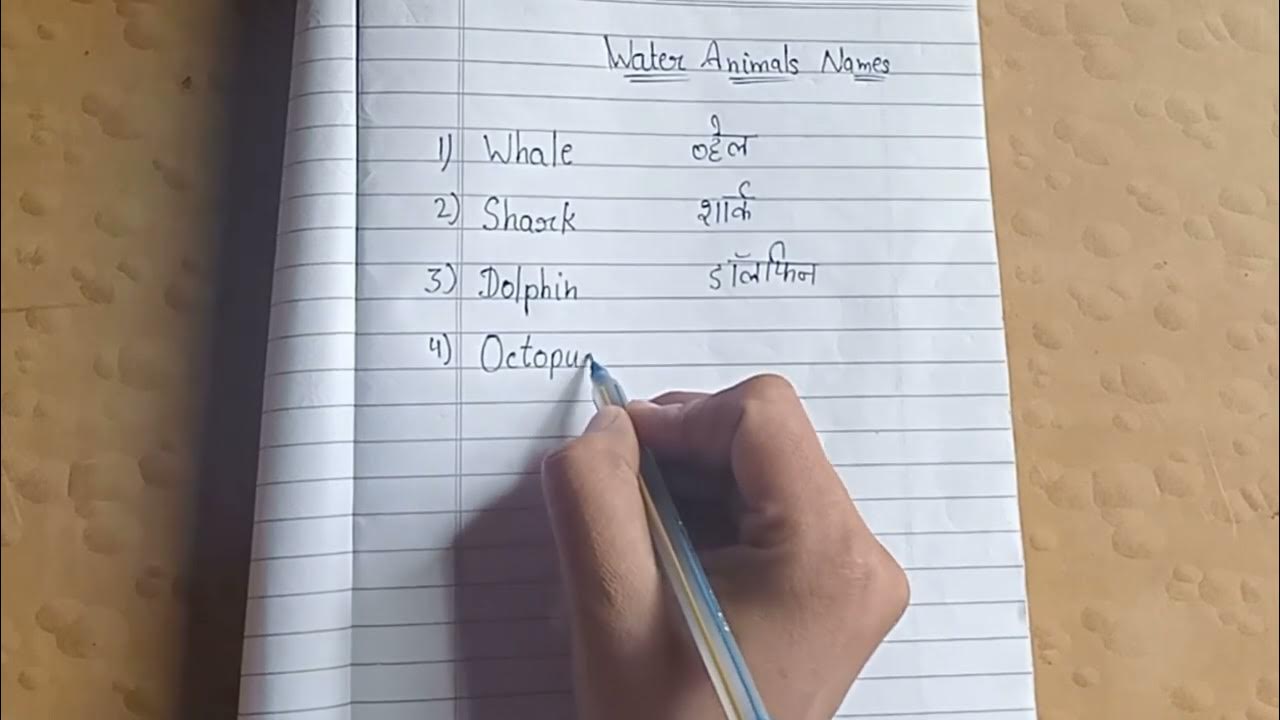 Water Animals Names
1) Whale व्हेल
2) Shark शार्क
3) Dolphin डॉलफिन
4) Octopu